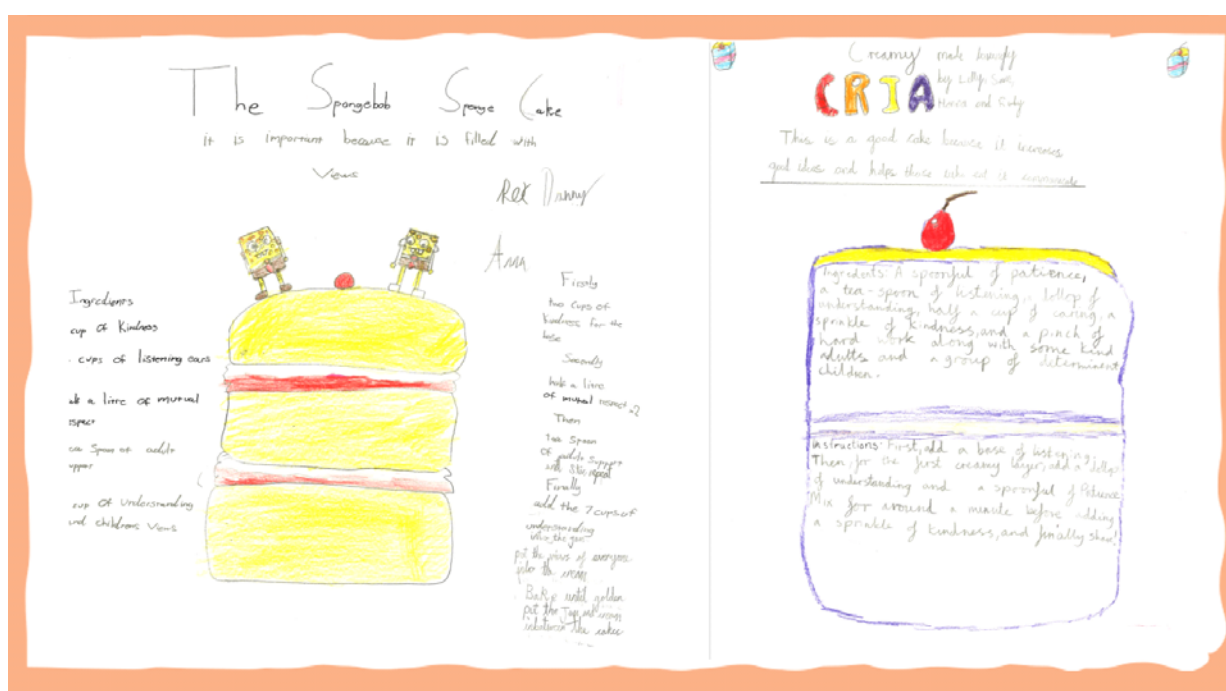 The Spongebob Sponge Cake
it is important because it is filled with
views
Rex Danny
Anna
Ingredients
cup of Kindness
cups of listening ears
a litre of mutual
spect
Spoon of adults
upport
cup of Understanding
and childrens views
Firstly
two cups of
kindness for the
base
Secondly
half a litre
of mutual respect x2
Then
tea spoon
of adults support
and Stir repeat
Finally
add the 7 cups of
understanding
put the views of everyone
into the cream
Bake until golden
put the Jam and cream
inbetween the cakes
Creamy made lovingly
CRIA
by Lilly, Sam,
Harris and
This is a good cake because it increases
good ideas and helps those who eat it communicate
Ingredients: A spoonful of patience,
a tea-spoon of listening, dollop of
understanding, half a cup of caring, a
sprinkle of kindness, and a pinch of
hard work along with some kind
adults and a group of determinent
children.
instructions: First, add a base of listening.
Then, for the first creamy layer, add a dollop
of understanding and a spoonful of Patience
Mix for around a minute before adding
a sprinkle of kindness, and finally share!